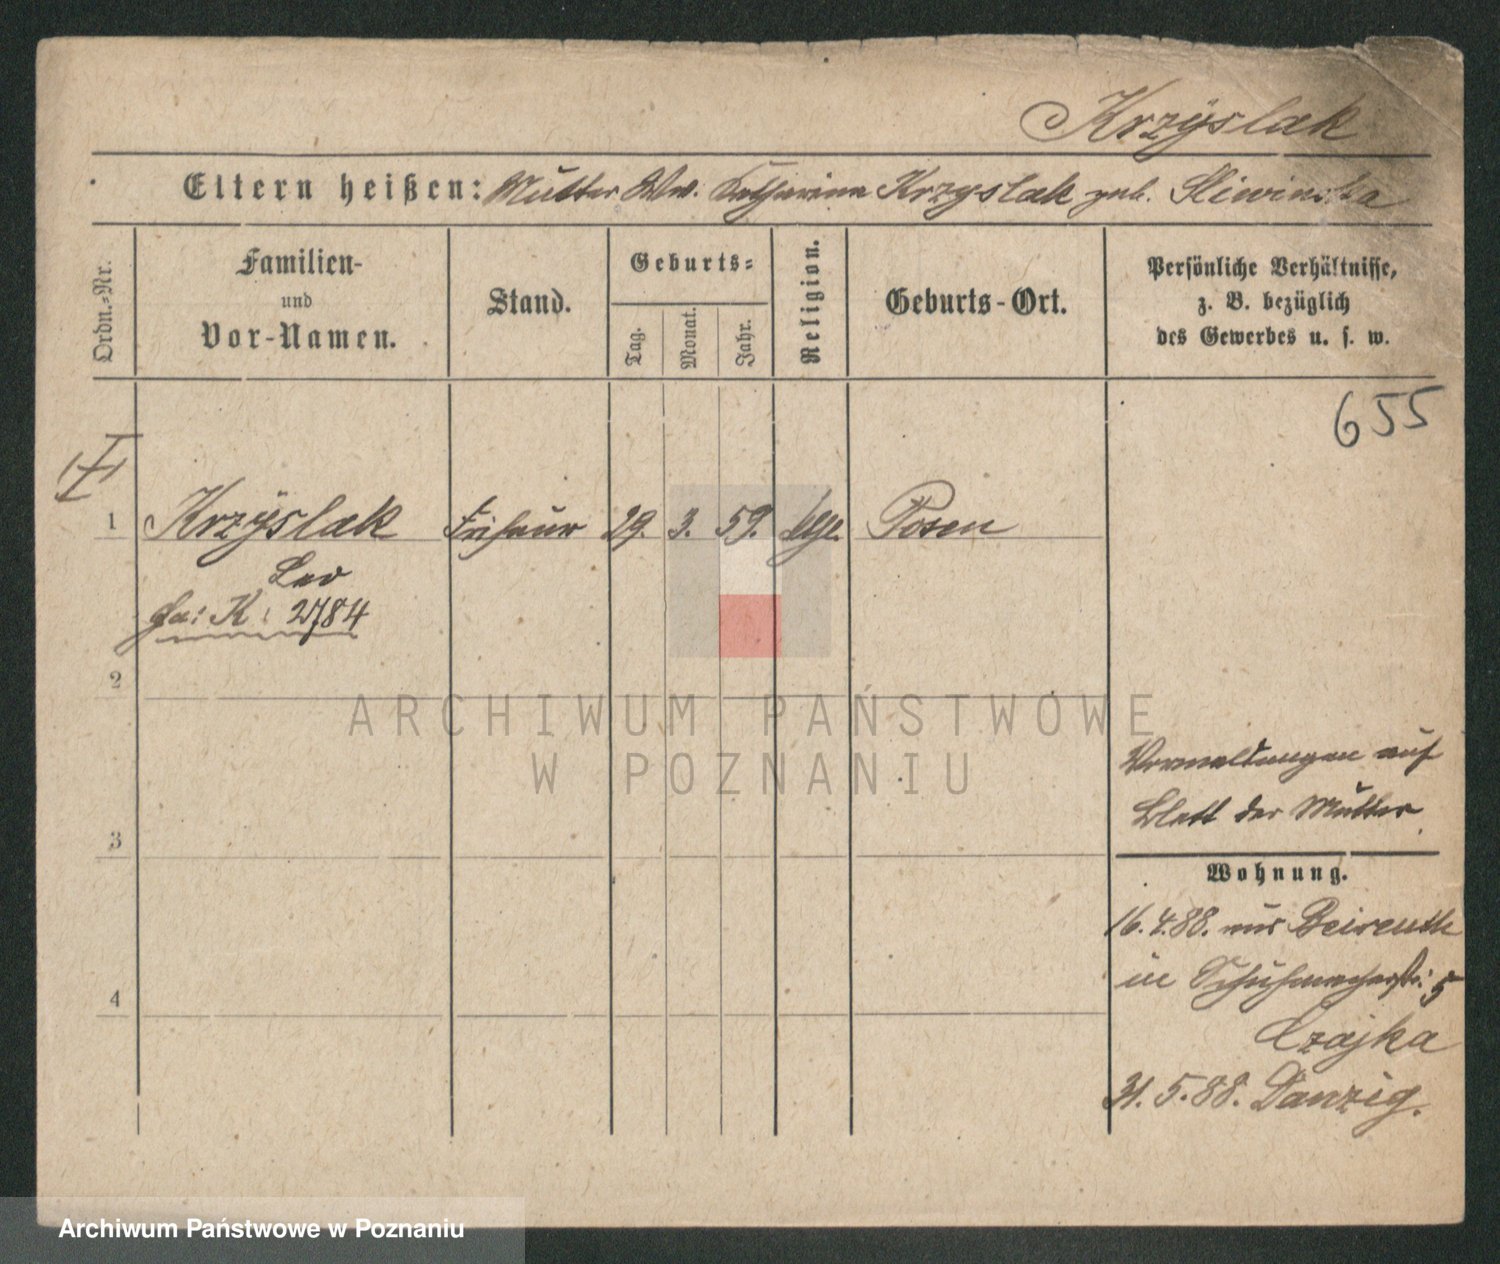 Krzÿslak
Eltern heißen: Mutter Ww. Katharina Krzyslak geb. Sliwinska
Ordn.-Nr.
Familien-
und
Vor-Namen.
Stand.
Geburts-
Tag.
Monat.
Jahr.
Religion.
Geburts-Ort.
Persönliche Verhältnisse,
z. B. bezüglich
des Gewerbes u. s. w.
655
1 Krzÿslak Friseur 29. 3. 59. kath. Posen
Leo
K: 2784
2
ARCHIWUM PAŃSTWOWE
W POZNANIU
Vormeldungen auf
Blatt der Mutter
3
Wohnung.
16.4.88. aus Beireuth
in Schuhmacherstr: 5
4
Czajka
31.5.88. Danzig.
Archiwum Państwowe w Poznaniu